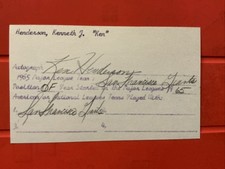 Henderson, Kenneth J. "Ken"
Autograph Ken Henderson
1965 Major League Team San Francisco Giants
Position OF Year Started in the Major Leagues 65
American/or National League Teams Played With:
San Francisco Giants